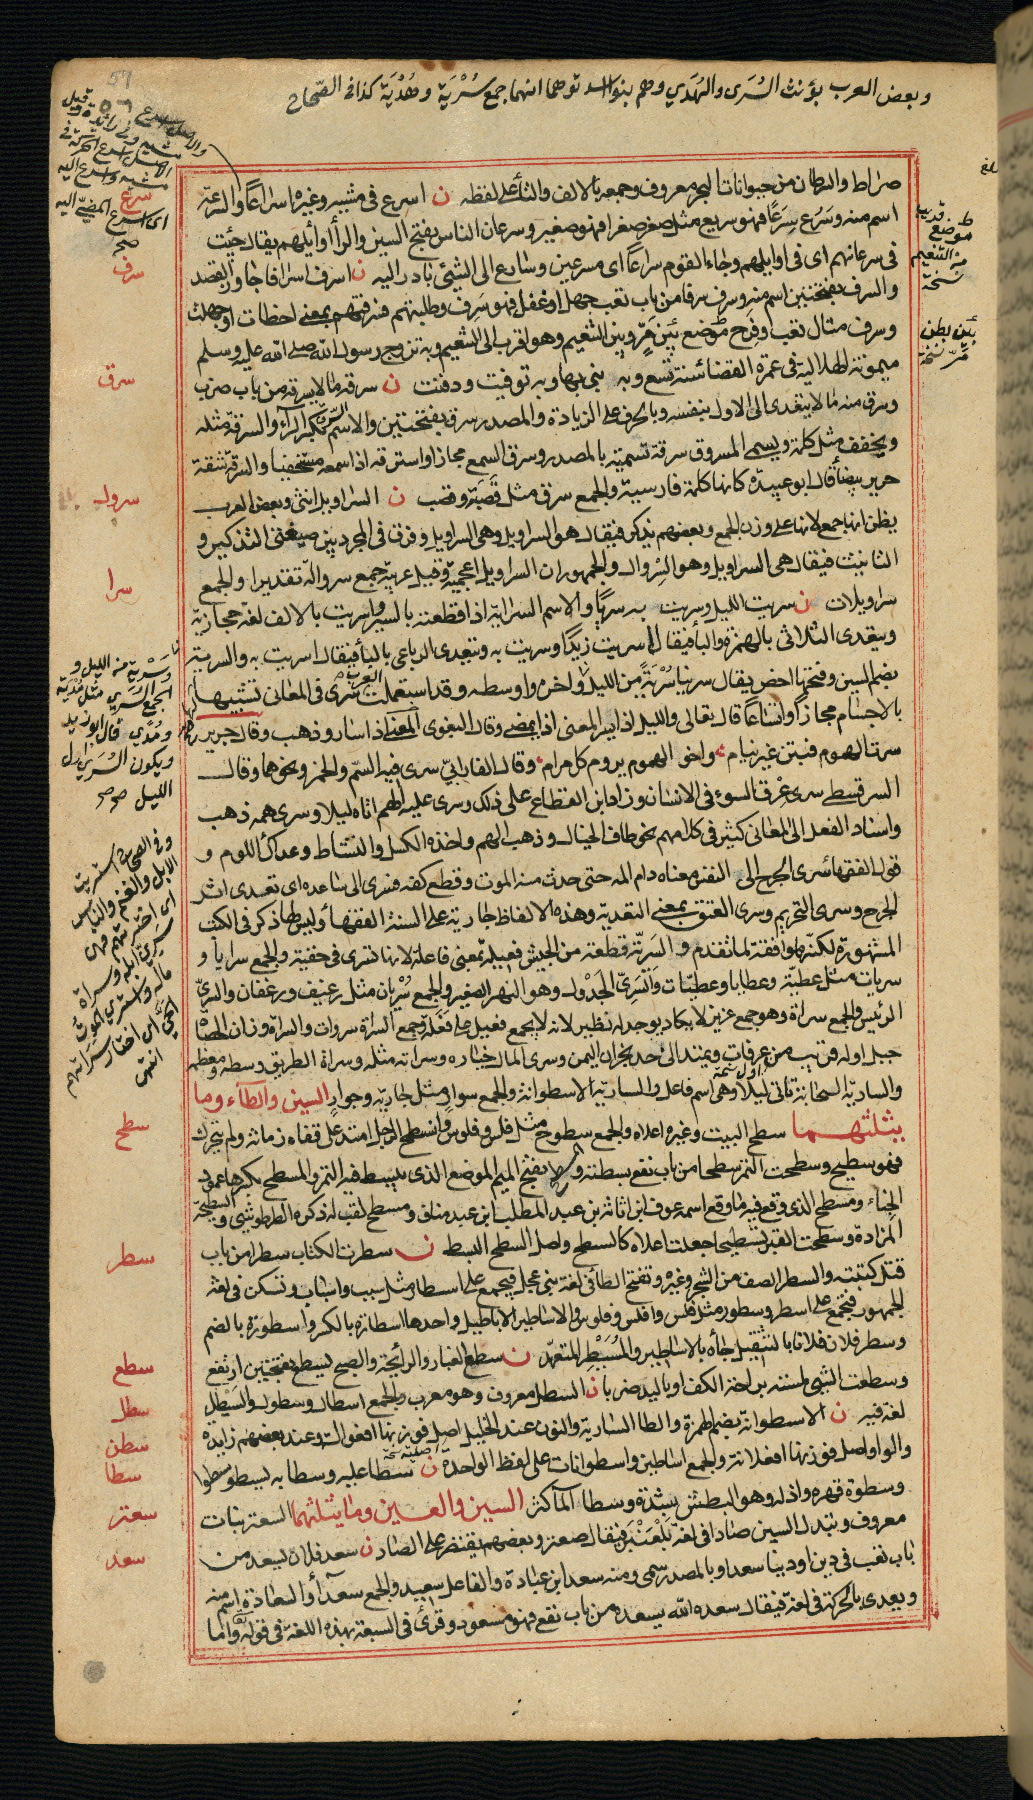 وبعض العرب يؤنث السُرَى والهُدَي وهم بنو اسد توهما انهما جمع سُرْيَة وهُدْيَة كذا في الصّحاح
صراط والسرطان من حيوانات البحر معروف وجمعه بالالف والتاء على لفظه ن اسرع في مشيه وغيره اسراعًا والسرعة
اسم منه وسَرُع سِرَعًا فهو سريع مثل صغر صغرا فهو صغير وسرعان الناس بفتح السين والرا أوائلهم يقال جئت
في سرعانهم اى في اوايلهم وجاء القوم سراعًا اى مسرعين وسارع الى الشيئ بادر اليه ن اسرف اسرافا جاوز القصد
والسرف بفتحتين اسم منه وسرف سرفا من باب تعب جهل او غفل فهو سَرِف وطلبتهم فسرفتهم بمعنى اخطات او جهلت
وسرف مثال تعب وفَرِح موضع بين مَرٍّ وبين التنعيم وهو اقرب الى التنعيم وبه تزوج رسول الله صلى الله عليه وسلم
ميمونة الهلالية في عمرة القضا سنة تسع وبه بنى بها وبه توفيت ودفنت ن سرقه مالا يسرقه من باب ضرب
وسرق منه مالا يتعدى الى الاول بنفسه وبالحرف على الزيادة والمصدر سرق بفتحتين والاسم السرق بكسر الرآء والسرقة مثله
ويخفف مثل كلمة ويسمى المسروق سرقة تسمية بالمصدر وسرق السمع مجازا واسترقه اذا سمعه مستخفيا والسرقة شقة
حرير بيضاء قال ابو عبيدة كانها كلمة فارسية والجمع سرق مثل قَصَبَة وقصب ن السراويل انثى وبعض العرب
يظن انها جمع لانها على وزن الجمع وبعضهم يذكر فيقال هو السراويل وهى السراويل وفرق في المجرد بين صيغتى التذكير و
التانيث فيقال هى السراويل وهو السِروال والجمهور ان السراويل اعجمية وقيل عربية جمع سروالة تقديرا والجمع
سراويلات ن سريت الليل وسريت به سريا والاسم السراية اذا قطعته بالسير واسريت بالالف لغة حجازية
ويتعدى الثلاثي بالهمزة والباء فيقال اسريت زيدًا وسريت به ويتعدى الرباعي بالباء فيقال اسريت به والسرية
بضم السين وفتحها اخص يقال سرينا سُرْيَةً من الليل واخره واوسطه وقد استعملت العرب سَرَى في المعانى تشبيها لها
بالاجسام مجازًا واتساعًا قال تعالى والليل اذا يسر المعنى اذا يمضى وقال البغوى المعنى اذا سار وذهب وقال جرير
سرت الهموم فبتن غير نيام واخو الهموم يروم كل مرام وقال الفارابيّ سرى فيه السّم والخمر ونحوهما وقال
السرقسطى سرى عرق السوء في الانسان وزاد ابن القطاع على ذلك وسرى عليه الهم اتاه ليلا وسرى همه ذهب
واسناد الفعل الى المعانى كثير في كلامهم نحو طاف الخيال وذهب الهم واخذه الكسل والنشاط وعداك اللوم و
قول الفقها سرى الجرح الى النفس معناه دام المه حتى حدث منه الموت وقطع كفه فسرى الى ساعده اى تعدى اثر
الجرح وسرى التحريم وسرى العتق بمعنى التعدية وهذه الالفاظ جارية على السنة الفقهاء وليس لها ذكر في الكتب
المشهورة لكنها موافقة لما تقدم والسَرِيّة قطعة من الجيش فعيلة بمعنى فاعلة لانها تسرى في خفية والجمع سرايا و
سريات مثل عطية وعطايا وعطيات وَالسَّرِىّ الجَدْول وهو النهر الصغير والجمع سُرْيان مثل رغيف ورغفان والسرىّ
الرئيس والجمع سراة وهو جمع عزيز لا يكاد يوجد له نظير لانه لا يجمع فعيل على فَعَلة وجمع السراة سروات والسراة وزان الحصاة
جبل اوله قريب من عرفات ويمتد الى حد نجران اليمن وسرى المال خياره وسراته مثله وسراة الطريق وسطه ومعظمه
والسارية السحابة تاتى ليلا وهى اسم فاعل والسارية الاسطوانة والجمع سوارٍ مثل جارية وجوارٍ السين والطآء وما
يثلثهما سطح البيت وغيره اعلاه والجمع سطوح مثل فلس وفلوس وانسطح الرجل امتد على قفاه زمانة ولم يتحرك
فهو سطيح وسطحت التمر سطحا من باب نفع بسطته والمسطح بفتح الميم الموضع الذى يبسط فيه التمر والمسطح بكسرها عمود
الخباء ومسطح الذى وقع فيه ما وقع اسمه عوف ابن اثاثة بن عبد المطلب ابن عبد مناف ومسطح لقب له ذكره الطرطوشى والسطيحة
المزادة وسطحت القبر تسطيحا جعلت اعلاه كالسطح واصل السطح البسط ن سطرت الكتاب سطرا من باب
قتل كتبته والسطر الصف من الشجر وغيره وتفتح الطا في لغة بنى عجل فيجمع على اسطار مثل سبب واسباب وتسكن في لغة
الجمهور فتجمع على اسطر وسطور مثل فلس وافلس وفلوس والاساطير الاباطيل واحدها اسطارة بالكسر واسطورة بالضم
وسطر فلان فلانا بالتثقيل جاءه بالاساطير والمُسَيْطِر المتعهّد ن سطع الغبار والرايحة والصبح يسطع بفتحتين ارتفع
وسطعت الشى لمسته براحة الكف او باليد ضربا ن السطل معروف وهو معرب والجمع اسطال وسطول والسَيْطل
لغة فيه ن الاسطوانة بضم الهمزة والطا السارية والنون عند الخليل اصل فوزنها افعوالة وعند بعضهم زايدة
والواو اصل فوزنها افعلانة والجمع اساطين واسطوانات على لفظ الواحدة ن سطا عليه وسطا به يسطو سطوا
وسطوة قهره واذله وهو البطش بشدة وسطا المآ كثر السين والعين وما يثلثهما السعتر نبات
معروف وتبدل السين صادا في لغة بَلْعَنْبَر فيقال صعتر وبعضهم يقتصر على الصاد ن سعد فلان يسعد من
باب تعب في دين او دنيا سعدا وبالمصدر سمى ومنه سعد ابن عبادة والفاعل سعيد والجمع سعدآء والسعادة اسم منه
ويعدى بالحركة في لغة فيقال سعده الله يسعده من باب نفع فهو مسعود وقرئ في السبعة بهذه اللغة في قوله تعالى واما
سرع
سرف
سرق
سرول
سرا
سطح
سطر
سطع
سطل
سطن
سطا
سعتر
سعد
موضع قريب
من التنعيم
نسخة
بين بطن
مَرّ نسخة
وسَرْيةً من الليل و
الجمع السُرَى مثل مُدْية
ومُدًى قال ابو زيد
ويكون السُرَى اول
الليل
وفي الصحاح استريت
الابل والغنم والناس
اى اخترتهم